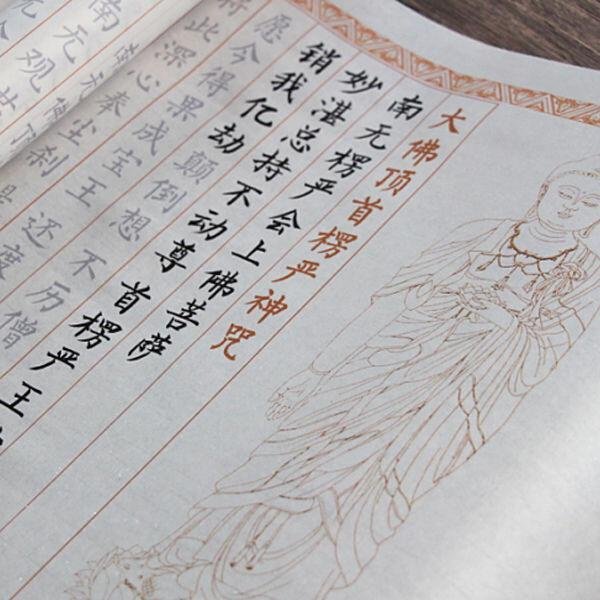 大佛顶首楞严神咒
南无楞严会上佛菩萨
妙湛总持不动尊 首楞严王
销我亿劫颠倒想 不历僧
愿今得果成宝王 还度
将此深心奉尘刹 是
南无
南无观世